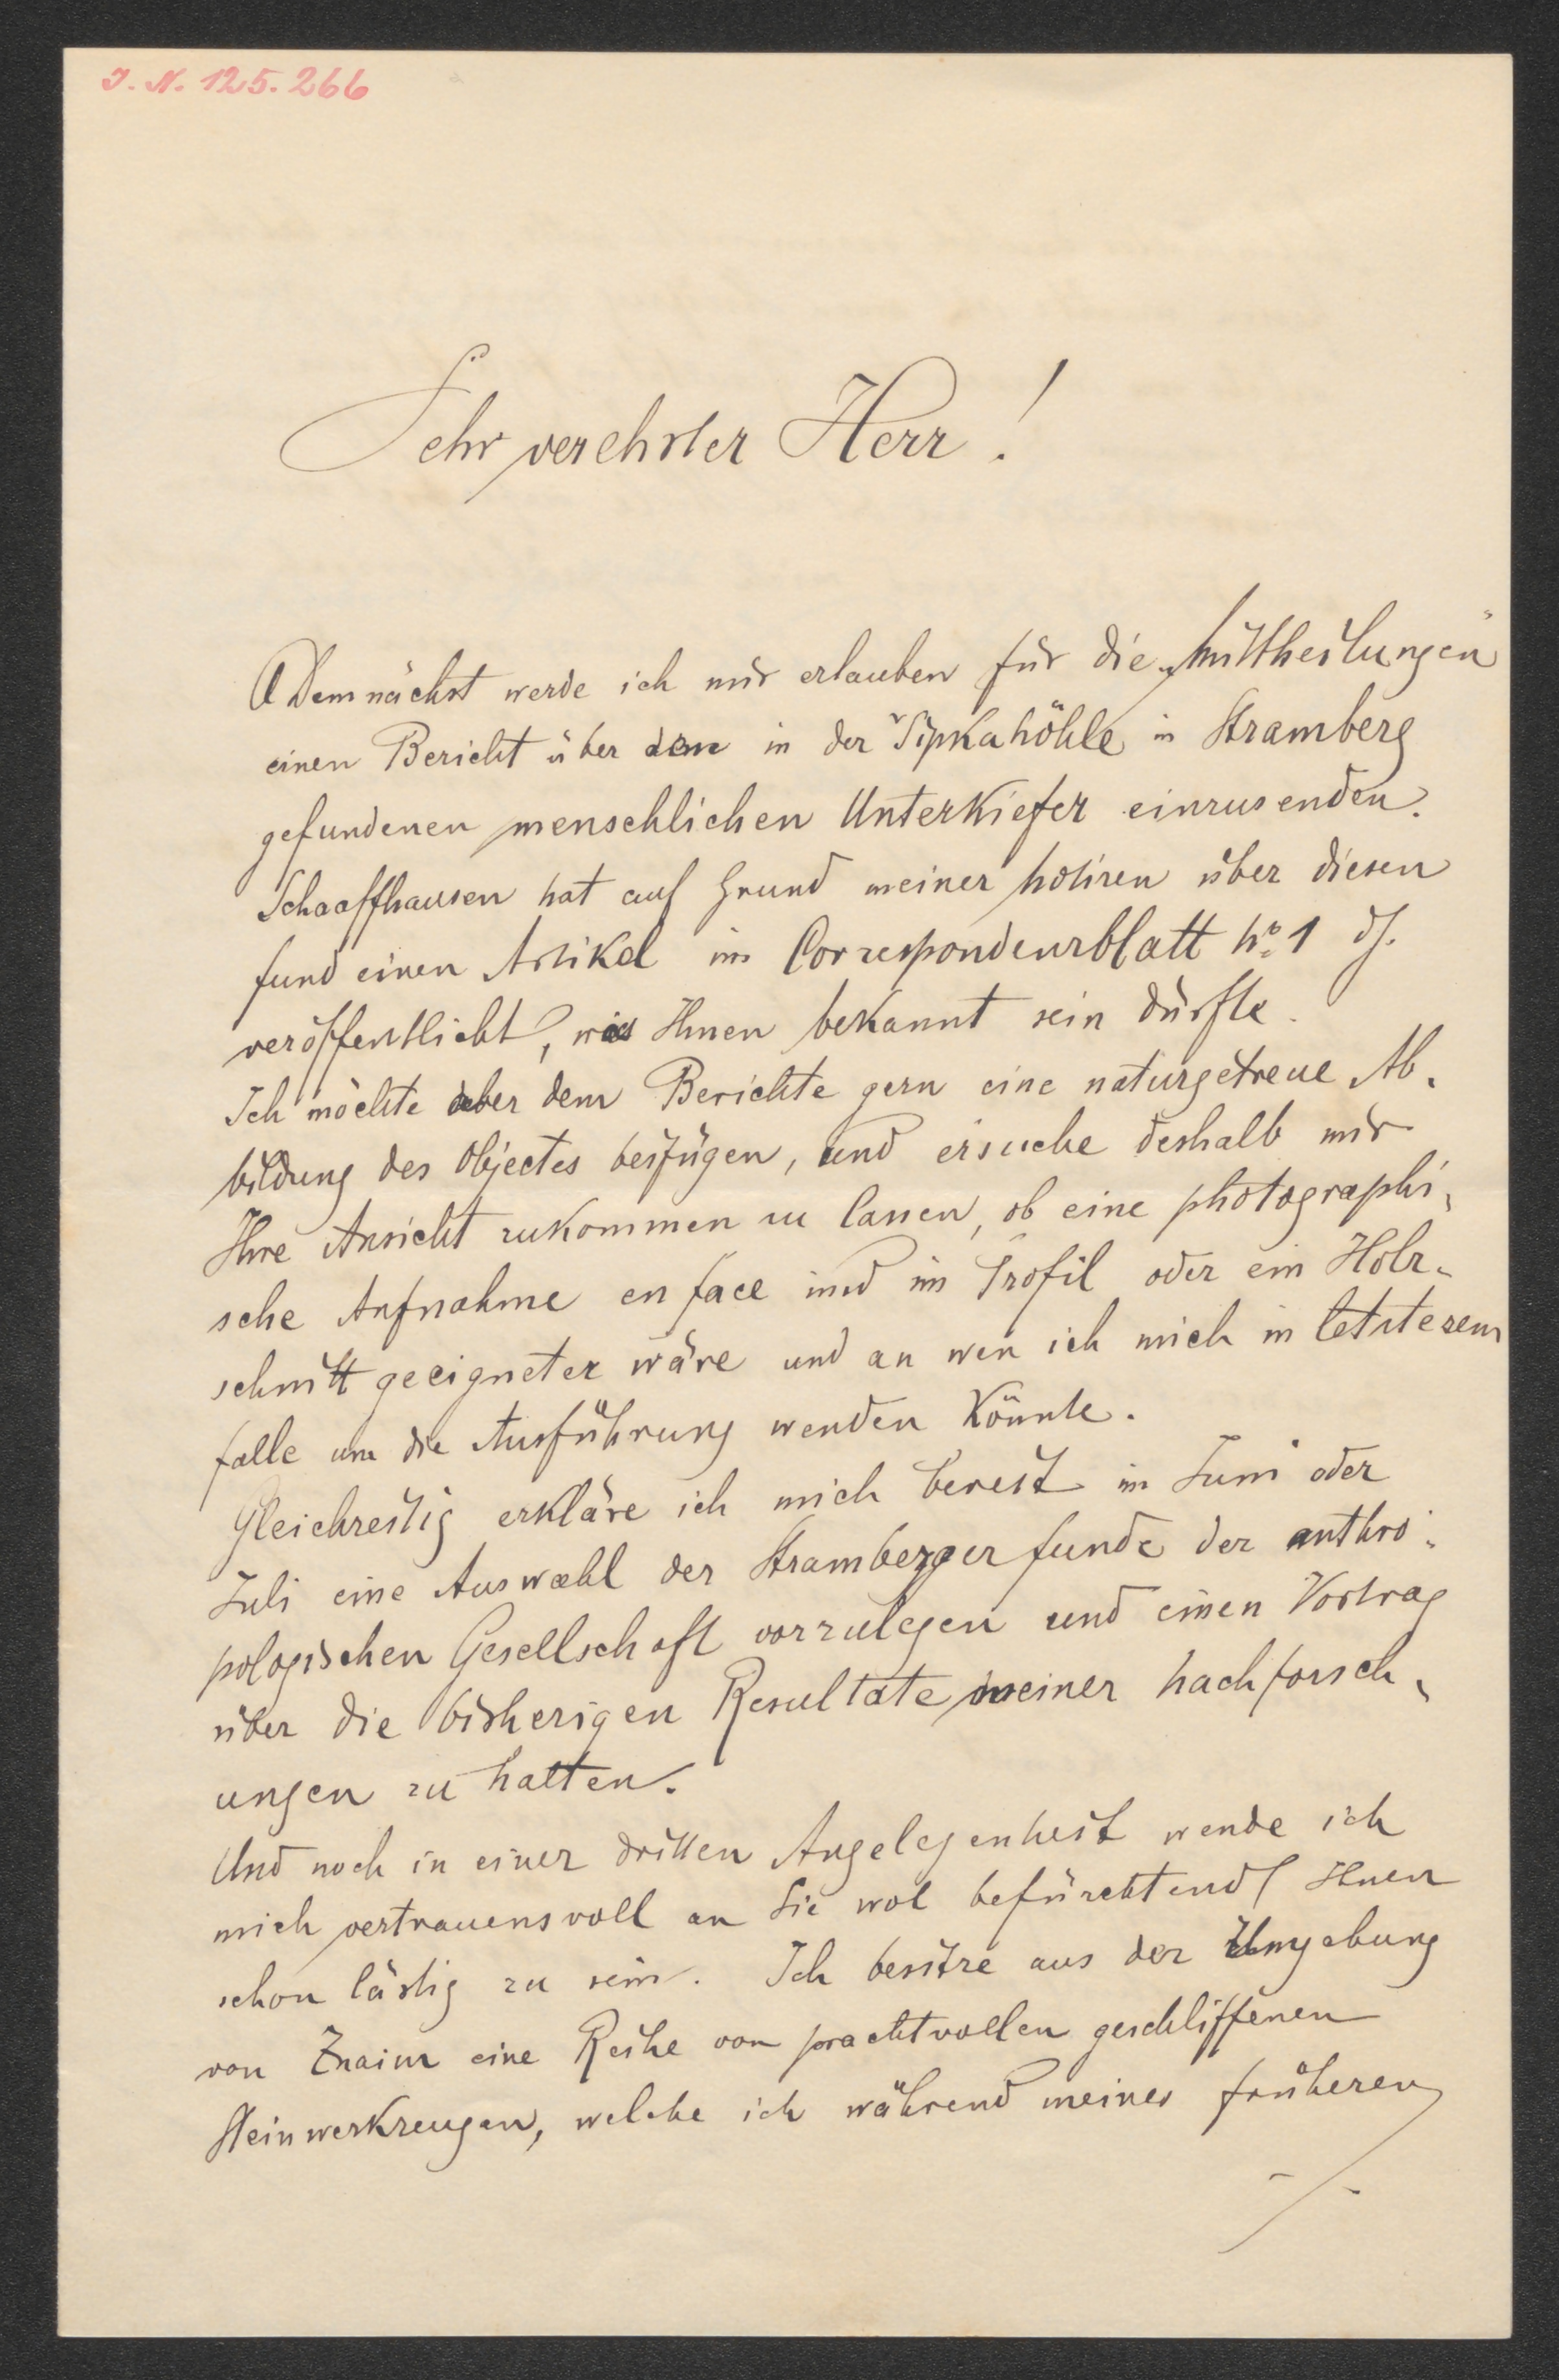 J. N. 125.266
Sehr verehrter Herr!
Demnächst werde ich mir erlauben für die „Mittheilungen"
einen Bericht über den in der Šipkahöhle in Stramberg
gefundenen menschlichen Unterkiefer einzusenden.
Schaaffhausen hat auf Grund meiner Notizen über diesen
Fund einen Artikel im Correspondenzblatt No 1 dJ.
veröffentlicht, was Ihnen bekannt sein dürfte.
Ich möchte aber dem Berichte gern eine naturgetreue Ab-
bildung des Objectes beifügen, und ersuche deshalb mir
Ihre Ansicht zukommen zu lassen, ob eine photographi-
sche Aufnahme en face und im Profil oder ein Holz-
schnitt geeigneter wäre und an wen ich mich in letzterem
Falle um die Ausführung wenden könnte.
Gleichzeitig erkläre ich mich bereit im Juni oder
Juli eine Auswahl der Stramberger Funde der anthro-
pologischen Gesellschaft vorzulegen und einen Vortrag
über die bisherigen Resultate meiner Nachforsch-
ungen zu halten.
Und noch in einer dritten Angelegenheit wende ich
mich vertrauensvoll an Sie wol befürchtend Ihnen
schon lästig zu sein. Ich besitze aus der Umgebung
von Znaim eine Reihe von prachtvollen geschliffenen
Steinwerkzeugen, welche ich während meines früheren